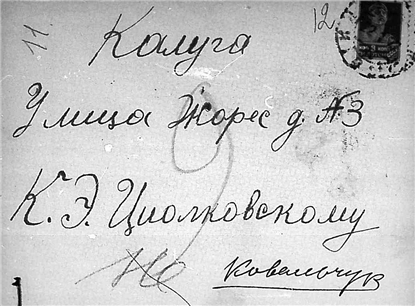 11.
12
Калуга
Улица Жорес д. №3
К. Э. Циолковскому
Ковальчук